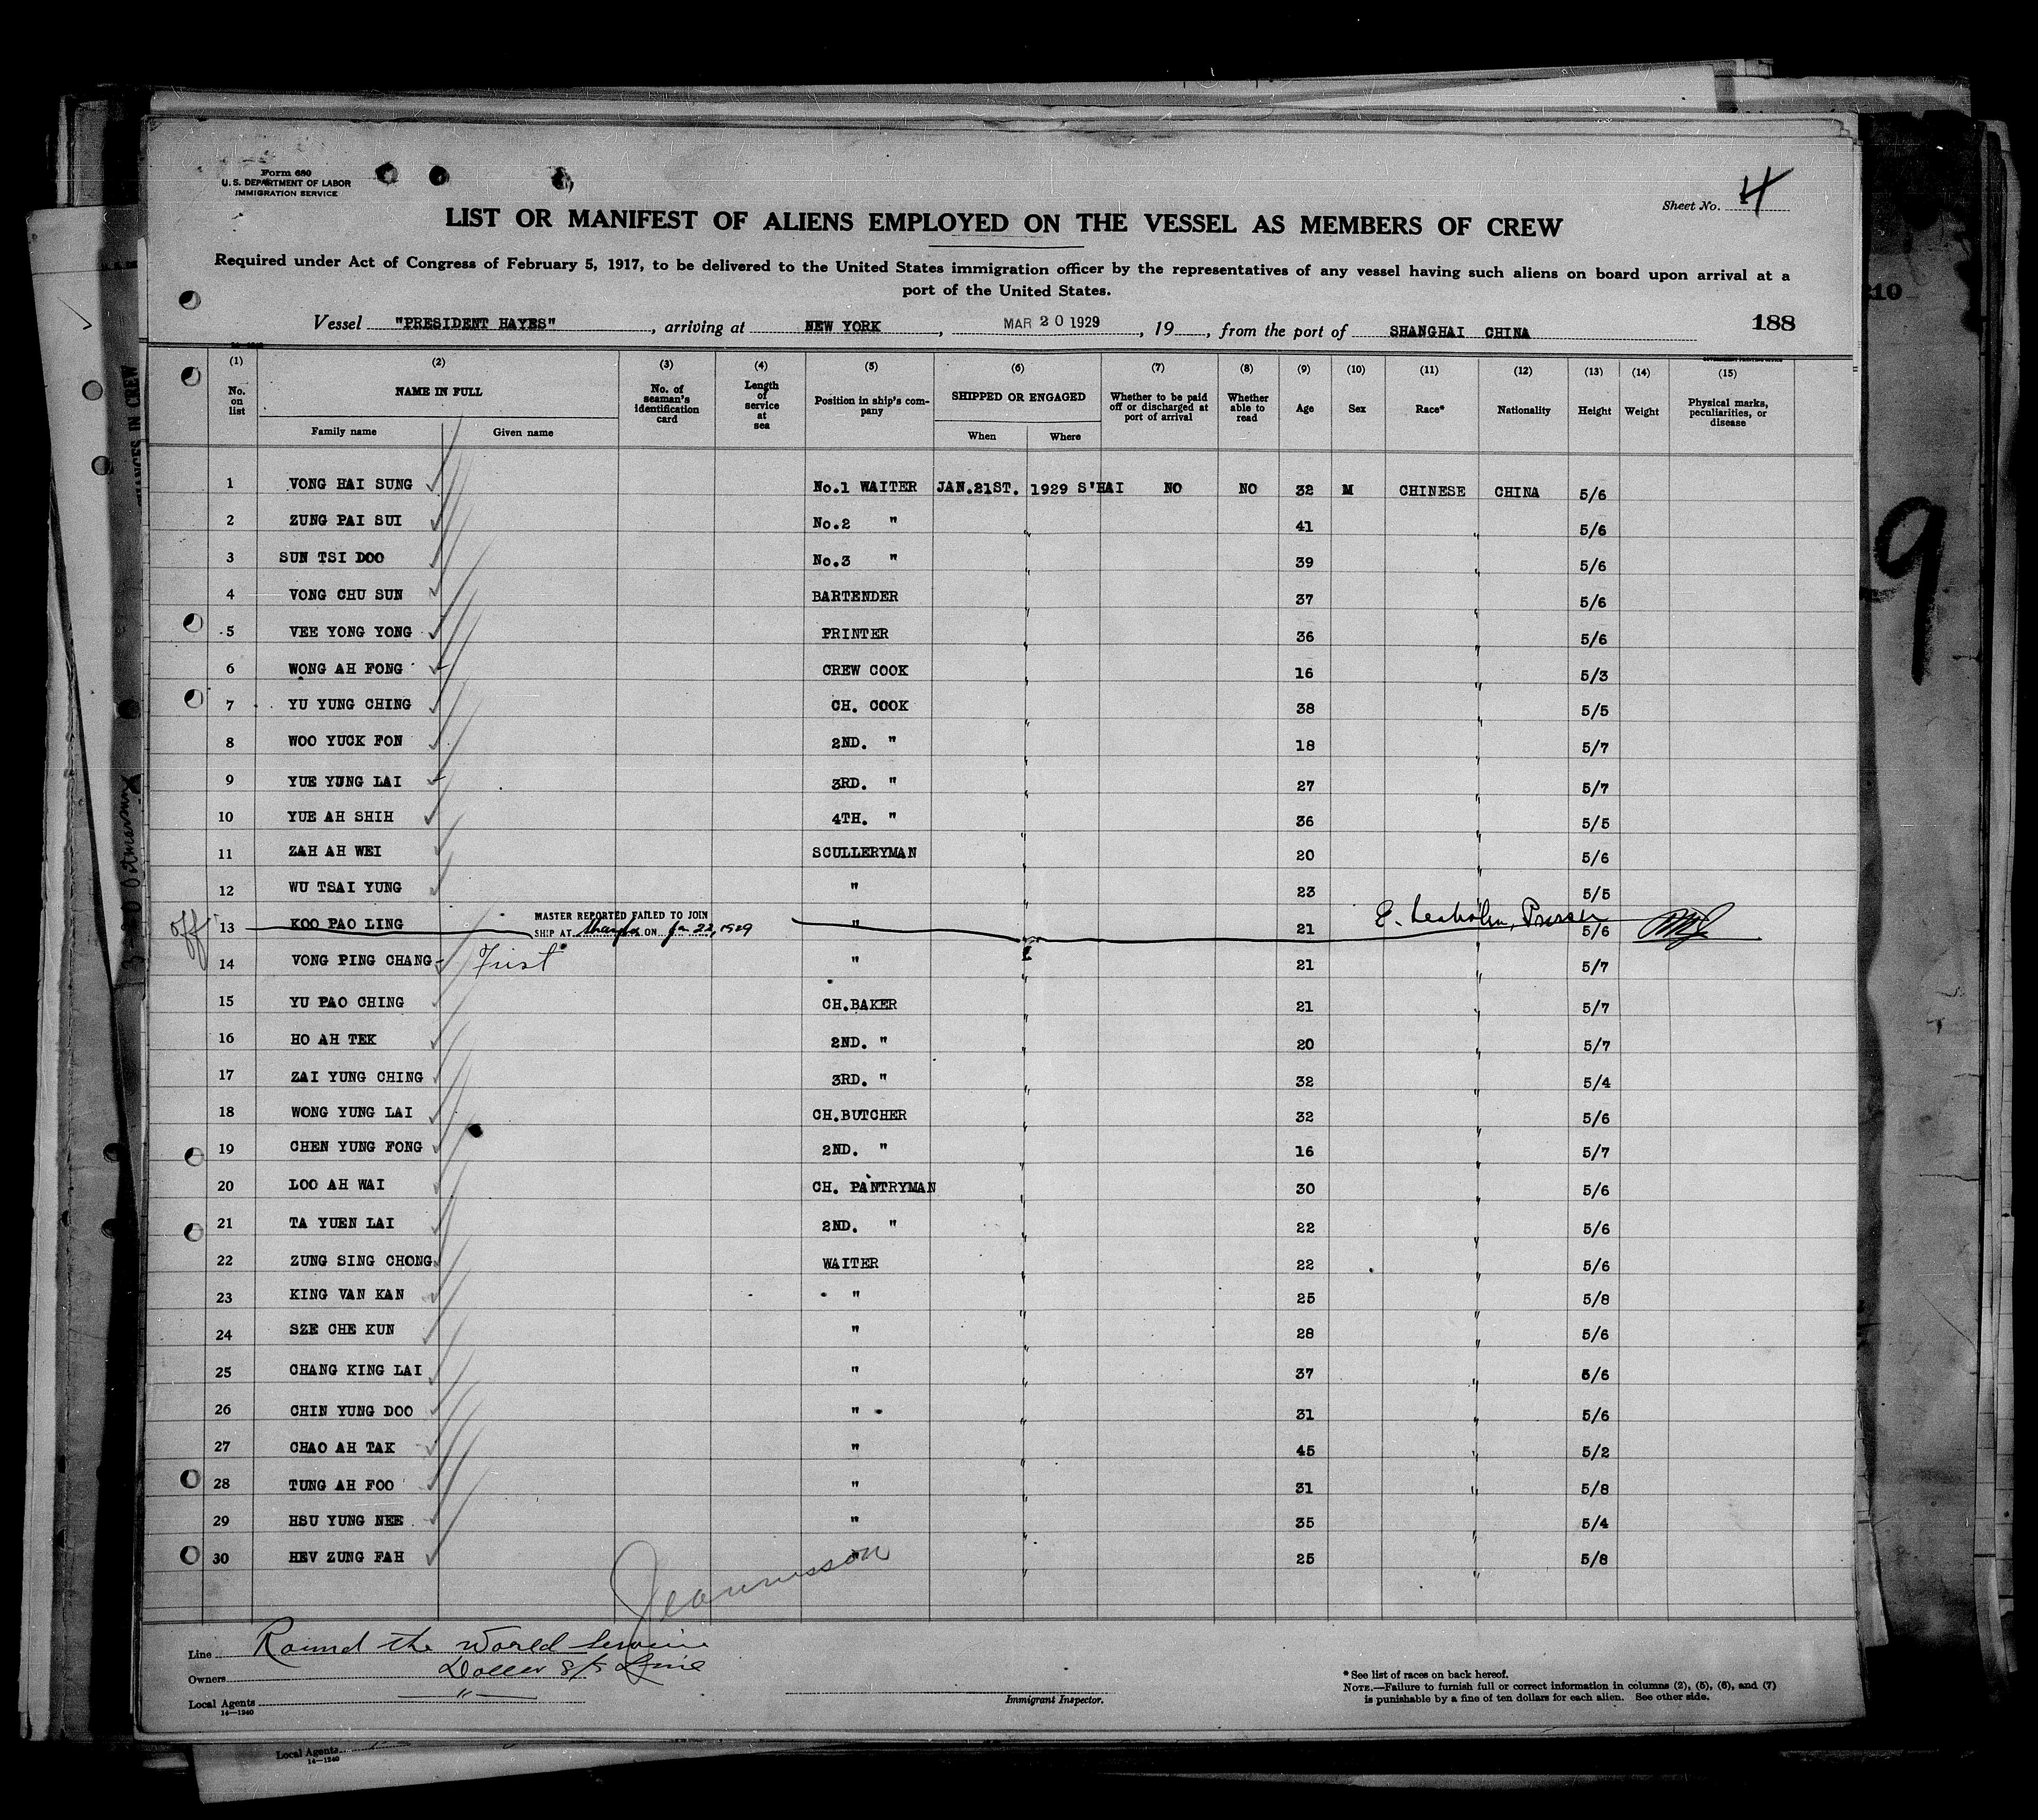 Form 680
U. S. DEPARTMENT OF LABOR
IMMIGRATION SERVICE
Sheet No. 4
LIST OR MANIFEST OF ALIENS EMPLOYED ON THE VESSEL AS MEMBERS OF CREW
Required under Act of Congress of February 5, 1917, to be delivered to the United States immigration officer by the representatives of any vessel having such aliens on board upon arrival at a
port of the United States.
Vessel "PRESIDENT HAYES", arriving at NEW YORK, MAR 20 1929, 19, from the port of SHANGHAI CHINA
188
210
9
(1) No. on list
(2) NAME IN FULL Family name Given name
(3) No. of seaman's identification card
(4) Length of service at sea
(5) Position in ship's company
(6) SHIPPED OR ENGAGED When Where
(7) Whether to be paid off or discharged at port of arrival
(8) Whether able to read
(9) Age
(10) Sex
(11) Race*
(12) Nationality
(13) Height
(14) Weight
(15) Physical marks, peculiarities, or disease
1 VONG HAI SUNG No.1 WAITER JAN.21ST. 1929 S'HAI NO NO 32 M CHINESE CHINA 5/6
2 ZUNG PAI SUI No.2 " " 41 " 5/6
3 SUN TSI DOO No.3 " " 39 " 5/6
4 VONG CHU SUN BARTENDER " 37 " 5/6
5 VEE YONG YONG PRINTER " 36 " 5/6
6 WONG AH FONG CREW COOK " 16 " 5/3
7 YU YUNG CHING CH. COOK " 38 " 5/5
8 WOO YUCK FON 2ND. " " 18 " 5/7
9 YUE YUNG LAI 3RD. " " 27 " 5/7
10 YUE AH SHIH 4TH. " " 36 " 5/5
11 ZAH AH WEI SCULLERYMAN " 20 " 5/6
12 WU TSAI YUNG " " 23 " 5/5
off 13 KOO PAO LING MASTER REPORTED FAILED TO JOIN SHIP AT Shanghai ON Jan 22, 1929 " 21 5/6
14 VONG PING CHANG First " " 21 " 5/7
15 YU PAO CHING CH.BAKER " 21 " 5/7
16 HO AH TEK 2ND. " " 20 " 5/7
17 ZAI YUNG CHING 3RD. " " 32 " 5/4
18 WONG YUNG LAI CH.BUTCHER " 32 " 5/6
19 CHEN YUNG FONG 2ND. " " 16 " 5/7
20 LOO AH WAI CH. PANTRYMAN " 30 " 5/6
21 TA YUEN LAI 2ND. " " 22 " 5/6
22 ZUNG SING CHONG WAITER " 22 " 5/6
23 KING VAN KAN " " 25 " 5/8
24 SZE CHE KUN " " 28 " 5/6
25 CHANG KING LAI " " 37 " 5/6
26 CHIN YUNG DOO " " 31 " 5/6
27 CHAO AH TAK " " 45 " 5/2
28 TUNG AH FOO " " 31 " 5/8
29 HSU YUNG NEE " " 35 " 5/4
30 HEV ZUNG FAH " " 25 " 5/8
Line Round the World Service
Owners Dollar S/S Line
Local Agents "
14—1240
Immigrant Inspector.
* See list of races on back hereof.
NOTE.—Failure to furnish full or correct information in columns (2), (5), (6), and (7)
is punishable by a fine of ten dollars for each alien. See other side.
Local Agents
14—1240